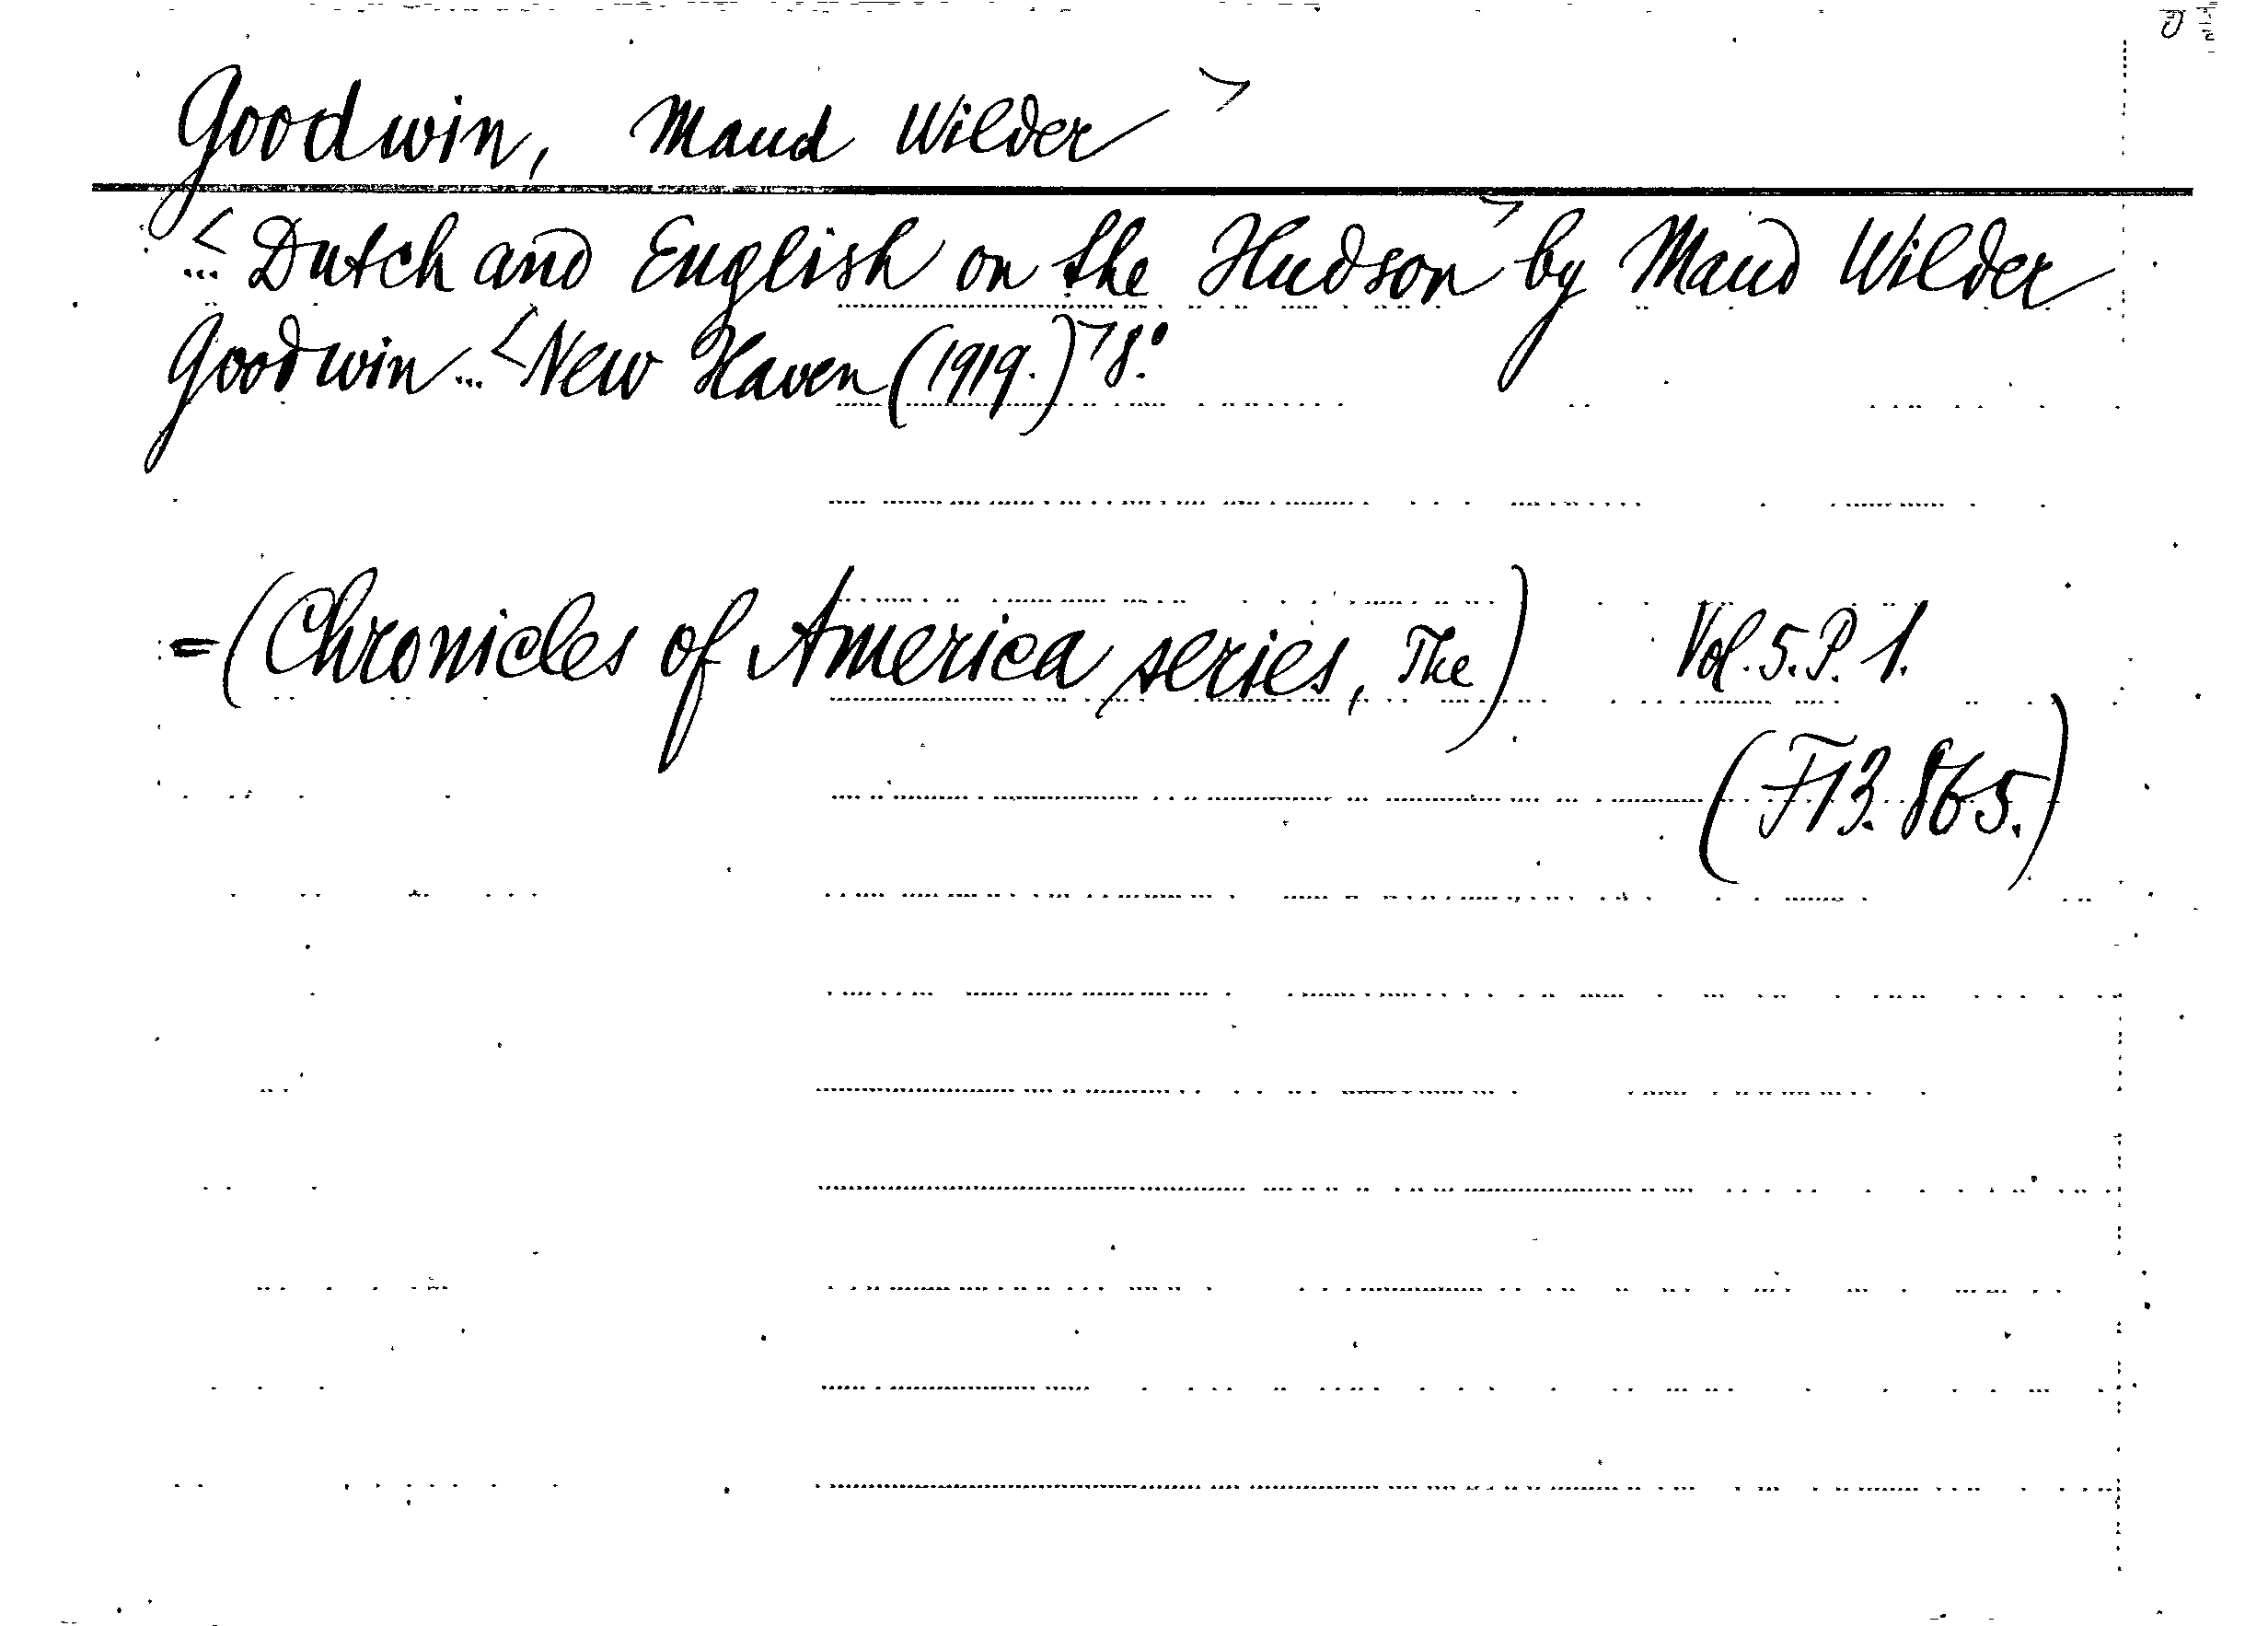 Goodwin, Maud Wilder >
<... Dutch and English on the Hudson> by Maud Wilder
Goodwin... <New Haven (1919.)> 8:°
=(Chronicles of America series, The) Vol. 5. P. 1.
(F13.865.)